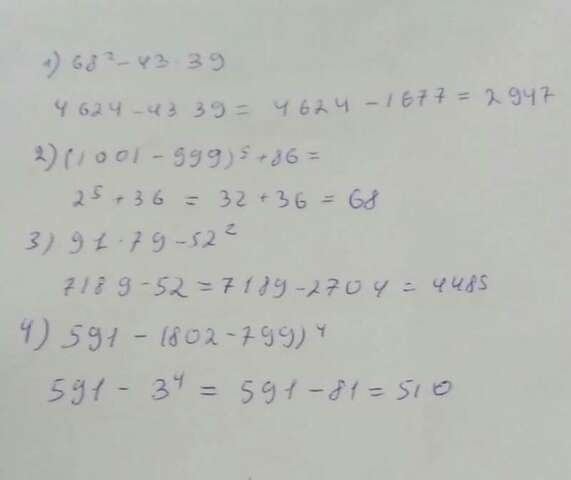 1) 68² - 43 · 39
4624 - 43 39 = 4624 - 1677 = 2947
2) (1001 - 999)⁵ + 86 =
2⁵ + 36 = 32 + 36 = 68
3) 91 · 79 - 52²
7189 - 52 = 7189 - 2704 = 4485
4) 591 - (802 - 799)⁴
591 - 3⁴ = 591 - 81 = 510